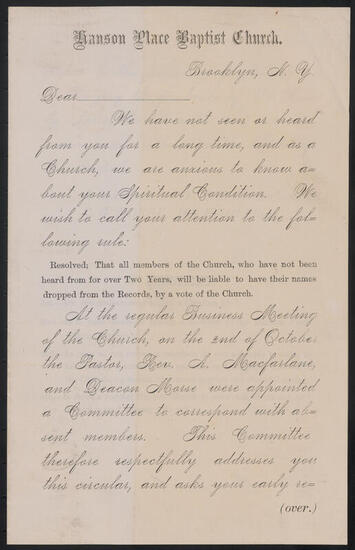 Hanson Place Baptist Church.
Brooklyn, N. Y.
Dear
We have not seen or heard
from you for a long time, and as a
Church, we are anxious to know a-
bout your Spiritual Condition. We
wish to call your attention to the fol-
lowing rule:
Resolved; That all members of the Church, who have not been
heard from for over Two Years, will be liable to have their names
dropped from the Records, by a vote of the Church.
At the regular Business Meeting
of the Church, on the 2nd of October
the Pastor, Rev. A. Macfarlane,
and Deacon Morse were appointed
a Committee to correspond with ab-
sent members. This Committee
therefore respectfully addresses you
this circular, and asks your early re-
(over.)